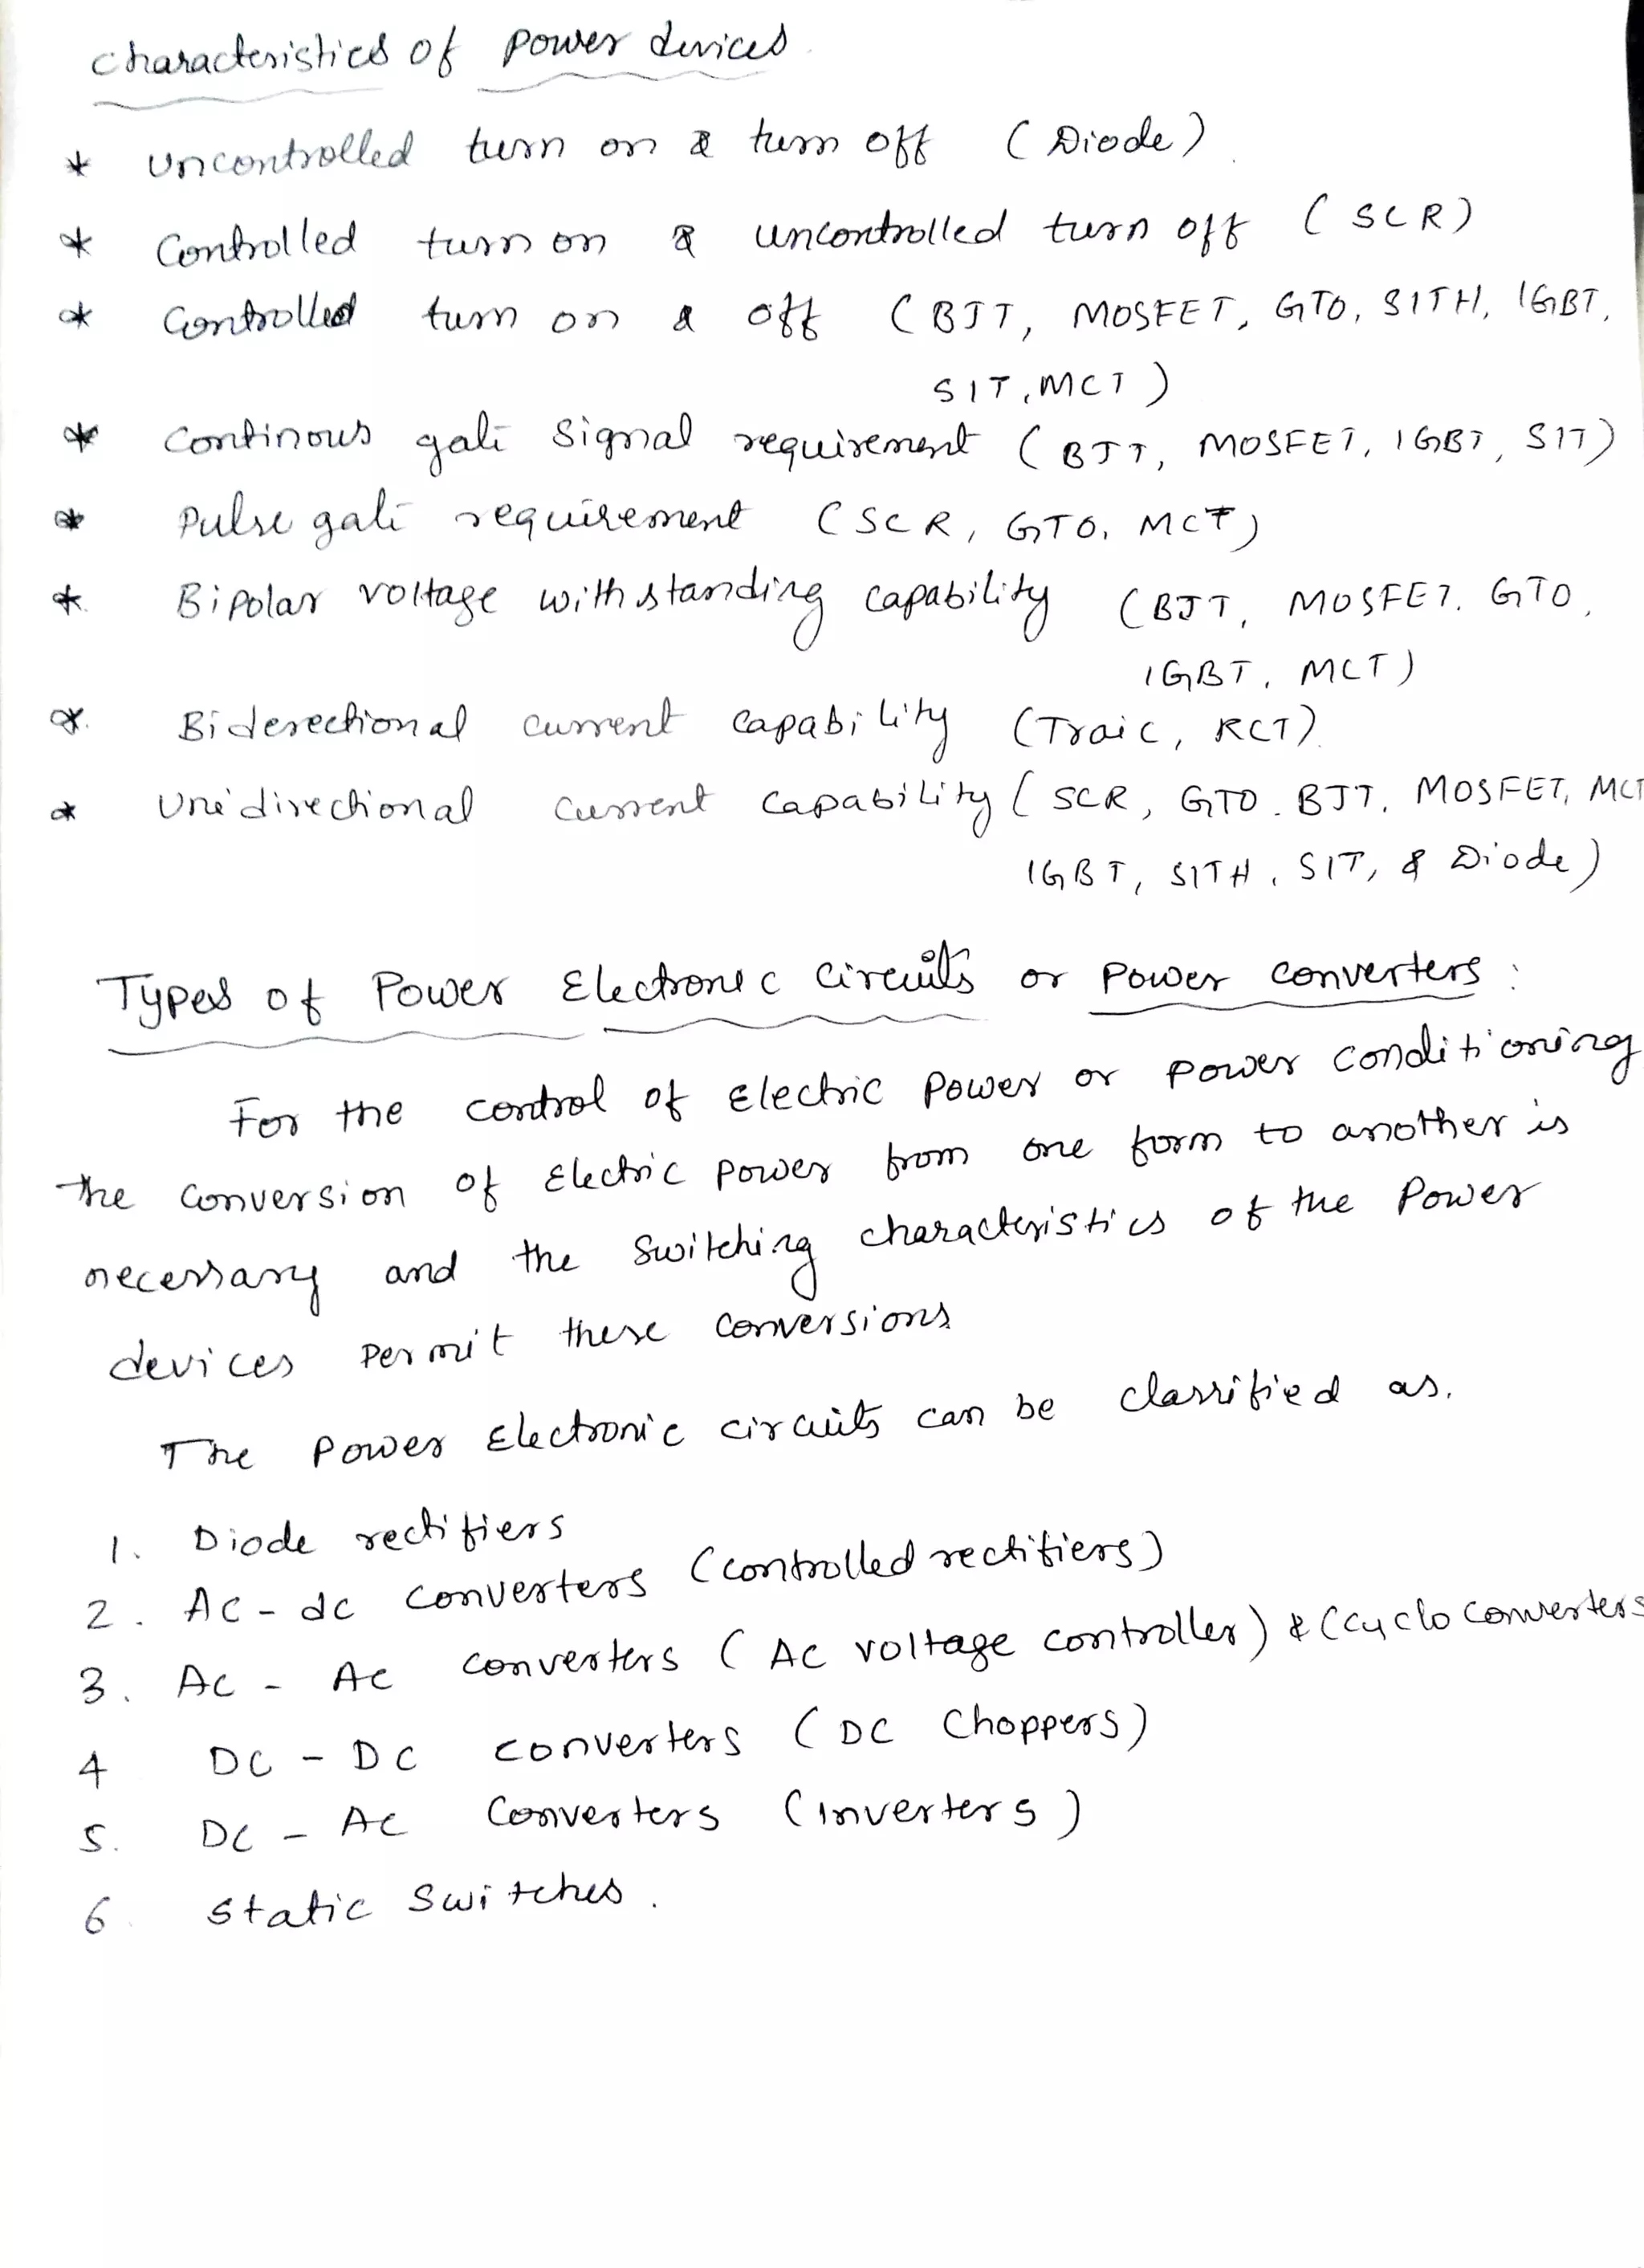 Characteristics of power devices
* Uncontrolled turn on & turn off (Diode)
* Controlled turn on & uncontrolled turn off (SCR)
* Controlled turn on & off (BJT, MOSFET, GTO, SITH, IGBT,
SIT, MCT)
* Continous gate signal requirement (BJT, MOSFET, IGBT, SIT)
* Pulse gate requirement (SCR, GTO, MCT)
* Bipolar voltage withstanding capability (BJT, MOSFET. GTO,
IGBT, MCT)
* Biderectional current capability (Traic, RCT)
* Unidirectional current capability (SCR, GTO. BJT, MOSFET, MCT
IGBT, SITH, SIT, & Diode)
Types of Power Electronic Circuits or Power converters :
For the control of Electric power or power conditioning
the conversion of Electric power from one form to another is
necessary and the switching characteristics of the power
devices permit these conversions
The power Electronic circuits can be classified as.
1. Diode rectifiers
2. AC - dc converters (controlled rectifiers)
3. AC - AC converters (AC voltage controller) & (cyclo converters
4 DC - DC converters (DC Choppers)
5. DC - AC Converters (inverters)
6 Static switches.